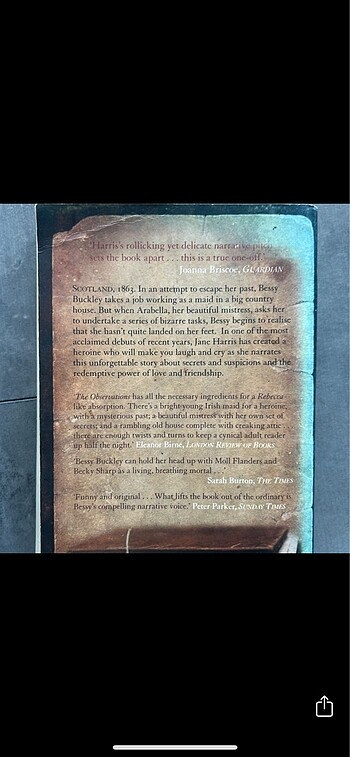 'Harris's rollicking yet delicate narrative pitch
sets the book apart . . . this is a true one-off'
Joanna Briscoe, GUARDIAN
SCOTLAND, 1863. In an attempt to escape her past, Bessy
Buckley takes a job working as a maid in a big country
house. But when Arabella, her beautiful mistress, asks her
to undertake a series of bizarre tasks, Bessy begins to realise
that she hasn't quite landed on her feet. In one of the most
acclaimed debuts of recent years, Jane Harris has created a
heroine who will make you laugh and cry as she narrates
this unforgettable story about secrets and suspicions and the
redemptive power of love and friendship.
'The Observations has all the necessary ingredients for a Rebecca-
like absorption. There's a bright young Irish maid for a heroine,
with a mysterious past; a beautiful mistress with her own set of
secrets; and a rambling old house complete with creaking attic . . .
there are enough twists and turns to keep a cynical adult reader
up half the night.' Eleanor Birne, LONDON REVIEW OF BOOKS
'Bessy Buckley can hold her head up with Moll Flanders and
Becky Sharp as a living, breathing mortal . . .'
Sarah Burton, THE TIMES
'Funny and original . . . What lifts the book out of the ordinary is
Bessy's compelling narrative voice.' Peter Parker, SUNDAY TIMES